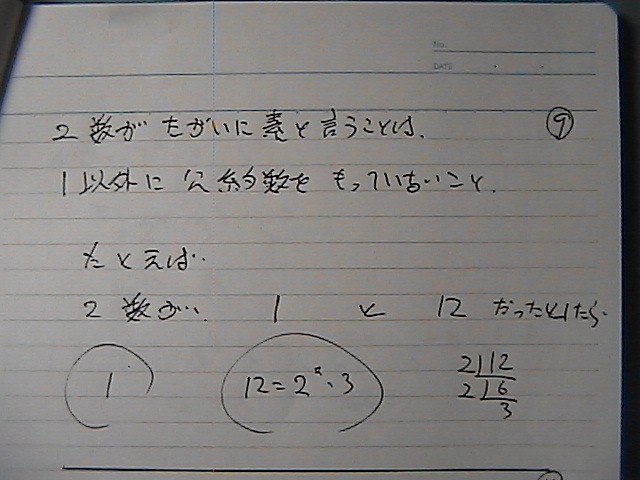 No.
DATE
2数がたがいに素と言うことは、 ⑨
1以外に公約数をもっていないこと、
たとえば…
2数が、 1 と 12 だったとしたら
1 12=2²・3
2|12
2|6
3